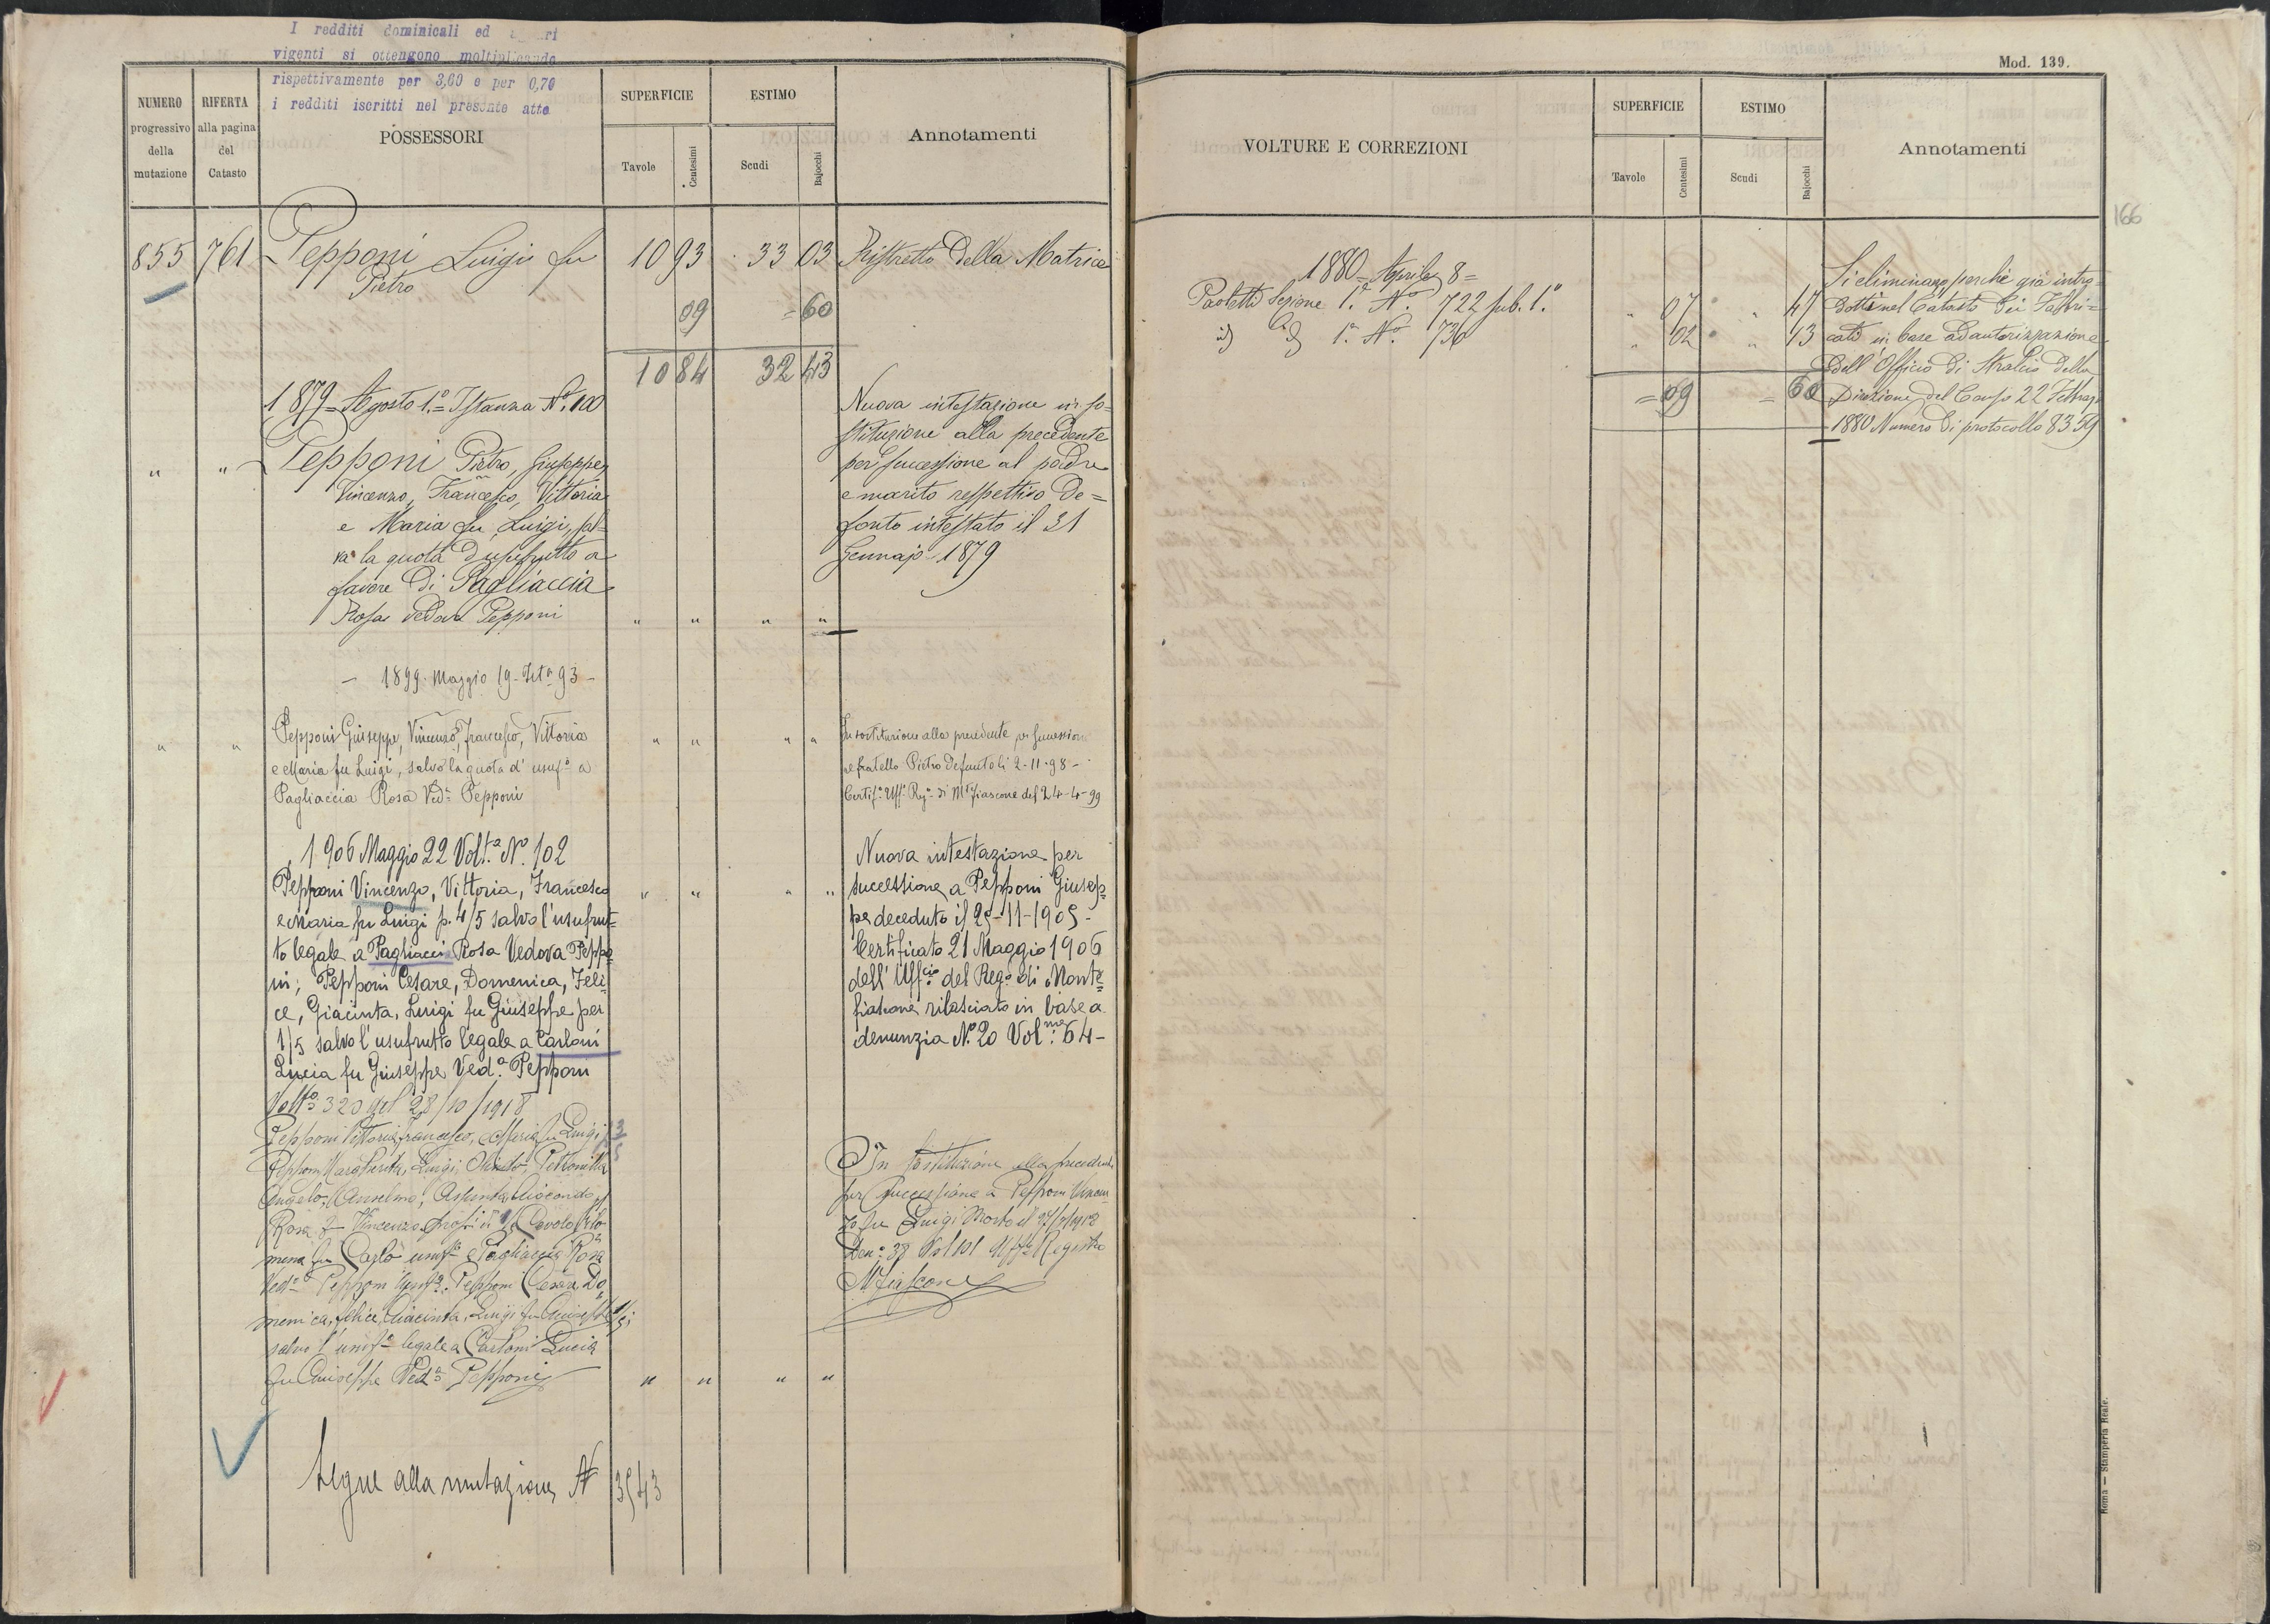 I redditi dominicali ed
vigenti si ottengono moltiplicando
rispettivamente per 3,60 e per 0,70
i redditi iscritti nel presente atto
NUMERO
progressivo
della
mutazione
RIFERTA
alla pagina
del
Catasto
POSSESSORI
SUPERFICIE
Tavole
Centesimi
ESTIMO
Scudi
Bajocchi
Annotamenti
855 761 Pepponi Luigi fu 10 93 33 03 Ristretto della Matrice
Pietro
09 = 60
10 84 32 43
1879 = Agosto 1.° = Istanza N.° 100
" " Pepponi Pietro, Giuseppe,
Vincenzo, Francesco, Vittoria
e Maria fu Luigi, sal=
va la quota d'usufrutto a
favore di Pagliaccia
Rosa vedova Pepponi " " " "
Nuova intestazione in so=
stituzione alla precedente
per successione al padre
e marito respettivo de=
fonto intestato il 31
Gennajo 1879
- 1899. Maggio 19. Ist.a 93 -
" " Pepponi Giuseppe, Vincenzo, Francesco, Vittoria " " " "
e Maria fu Luigi, salvo la quota d' usuf.o a
Pagliaccia Rosa Ved.a Pepponi
In sostituzione alla precedente per successione
al fratello Pietro defunto li 2-11-98 -
Certif.o Uff.o Reg.o di M.Fiascone del 24-4-99
1906 Maggio 22 Volt.a N.° 102
Pepponi Vincenzo, Vittoria, Francesco " " " "
e Maria fu Luigi p. 4/5 salvo l'usufrut=
to legale a Pagliacci Rosa Vedova Peppo=
ni; Pepponi Cesare, Domenica, Feli=
ce, Giacinta, Luigi fu Giuseppe per
1/5 salvo l'usufrutto legale a Carloni
Lucia fu Giuseppe Ved.a Pepponi
Nuova intestazione per
successione a Pepponi Giusep=
pe deceduto il 25-11-1905 -
Certificato 21 Maggio 1906
dell' Uff.cio del Reg.o di Monte=
fiascone rilasciato in base a
denunzia N.° 20 Vol.me 64 -
Volt.a 320 del 28/10/1918
Pepponi Vittoria, Francesco, e Maria fu Luigi 3/5
Pepponi Margherita, Luigi, Olindo, Petronilla
Angelo, Anselmo, Assunta, Gioconda,
Rosa fu Vincenzo
mena fu Carlo usuf.ia e Pagliaccia Rosa
Ved.a Pepponi usuf.a, Pepponi Cesare, Do=
menica, Felice, Giacinta, Luigi fu Giuseppe 1/5;
salvo l'usuf.o legale a Carloni Lucia
fu Giuseppe Ved.a Pepponi " " " "
In sostituzione alla precedente
per successione a Pepponi Vincen=
zo fu Luigi morto il
Den.a 38 Vol 101 Uff.o Registro
M.Fiascone
Segue alla mutazione N 3543
Mod. 139.
VOLTURE E CORREZIONI
SUPERFICIE
Tavole
Centesimi
ESTIMO
Scudi
Bajocchi
Annotamenti
166
1880 = Aprile 8 =
Paoletti Sezione 1.a N.° 722 sub. 1.° " 07 " 47
id 1.a N.° 736 " 02 " 13
= 09 = 60
Si eliminano, perchè già intro=
dotti nel Catasto dei Fabbri=
cati in base ad autorizzazione
dell' Officio di Stralcio della
Direzione del Censo 22
1880 Numero di protocollo 8359
Roma — Stamperia Reale.